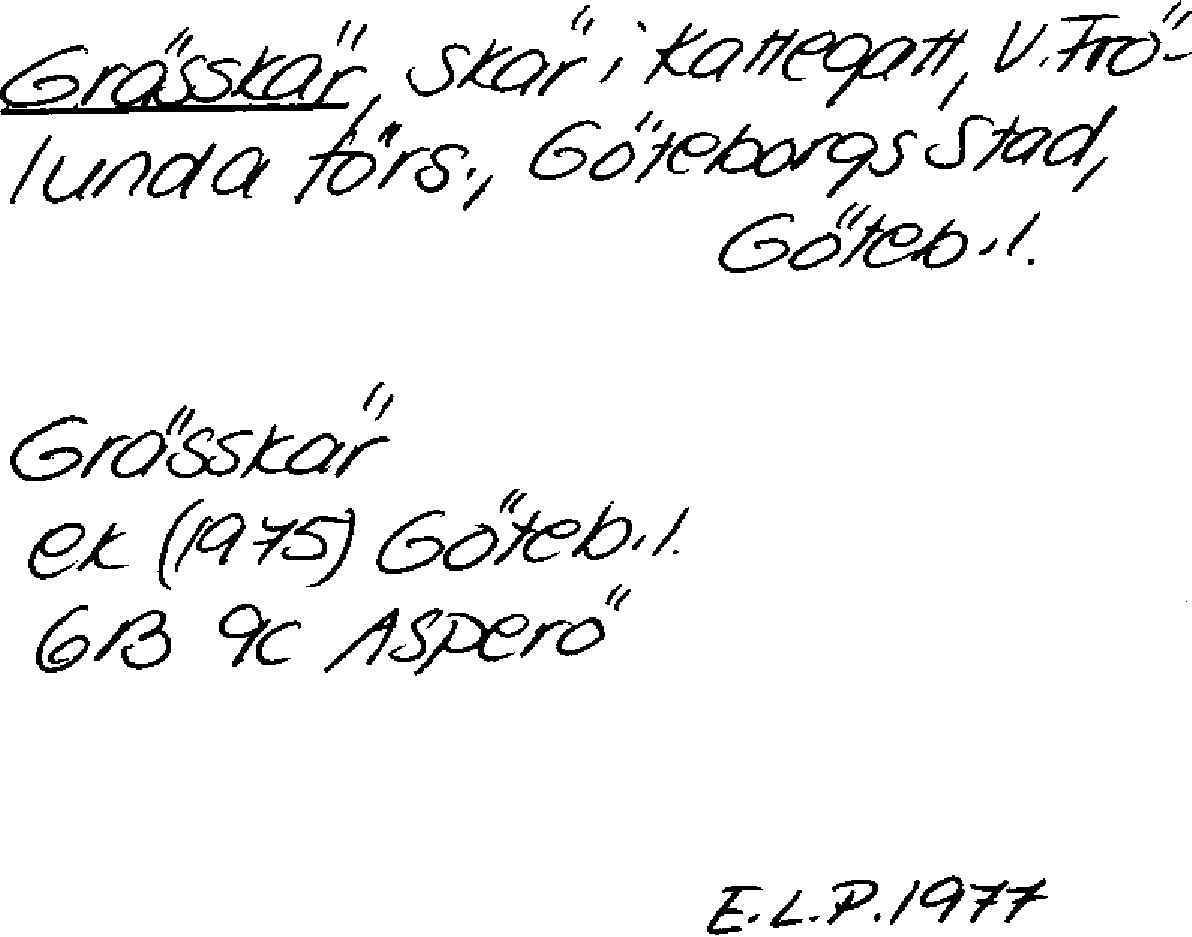 Grässkär, skär i Kattegatt, V. Frö-
lunda förs., Göteborgs Stad,
Göteb.l.
Grässkär
ek (1975) Göteb.l.
GB 9c Asperö
E.L.P. 1977